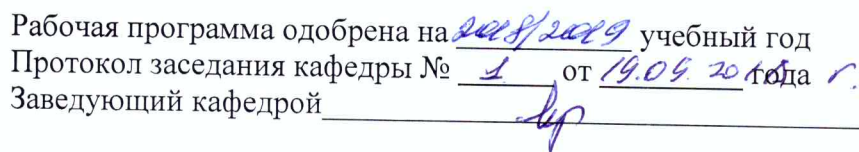 Рабочая программа одобрена на 2018/2019 учебный год
Протокол заседания кафедры № 1 от 19.09. 2018 года г.
Заведующий кафедрой